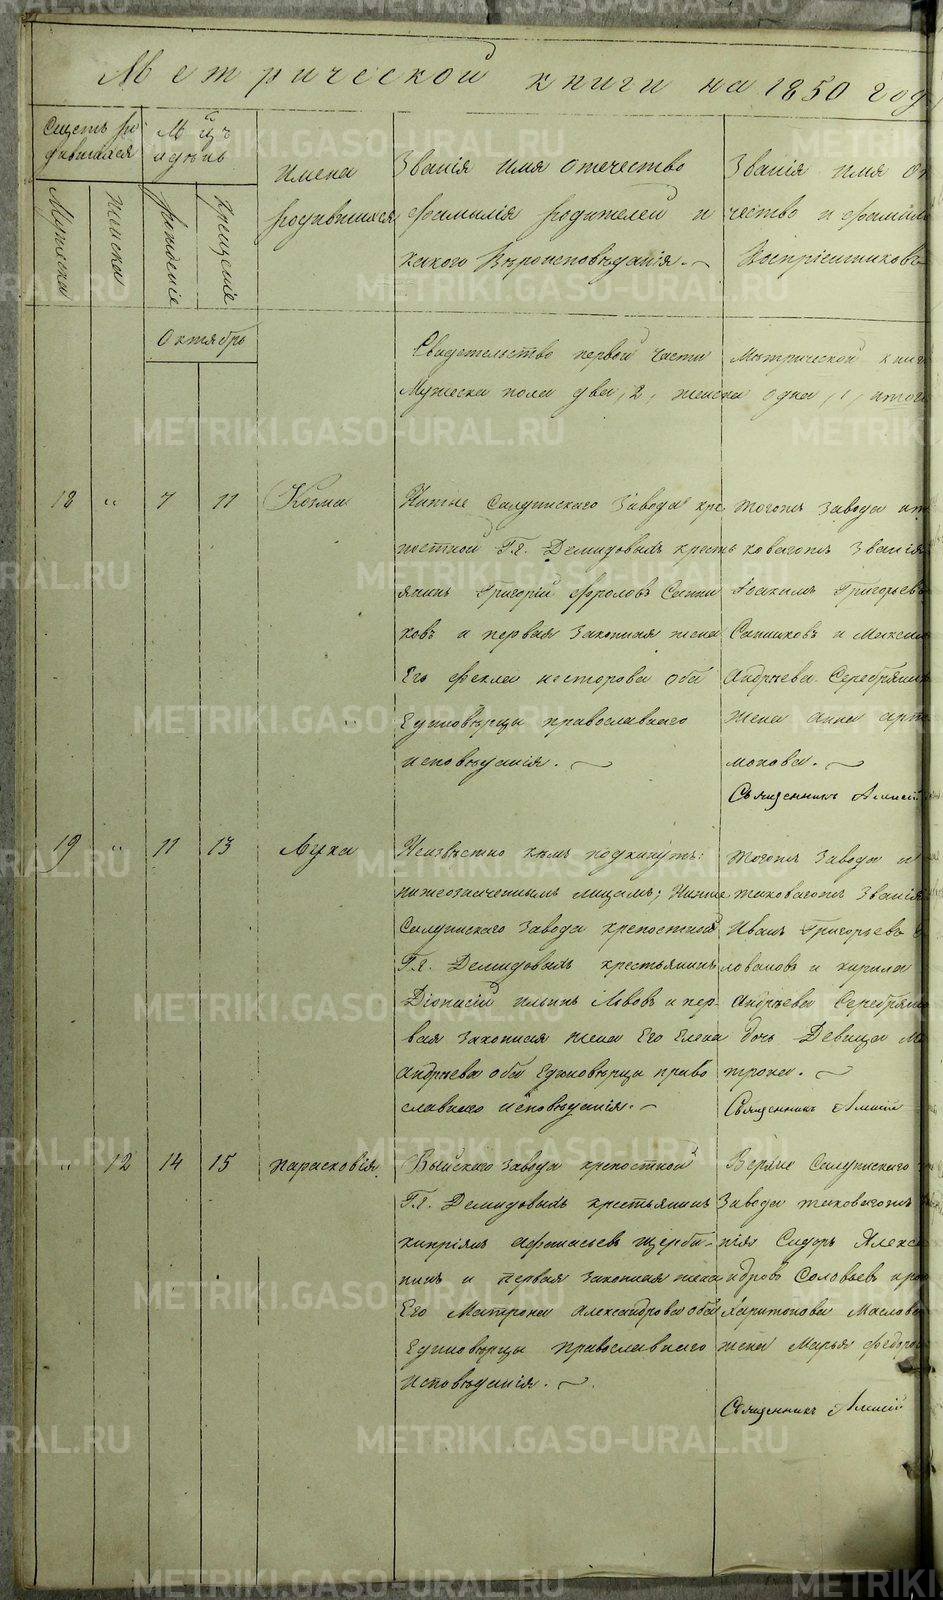 Метрической книги на 1850 год
Счетъ ро
дившихся
Мцъ
и день
Мужеска
женска
рожденіе
крещеніе
имена
родившихся
Званія имя отечество
фамилія родителей и
какого Вѣроисповѣданія.
Званія имя от
чество и фамилі
Воспріемниковъ
Октябрь
Свидетельство первой части Метрической книг
Мужеска пола два, 2, женска одна, 1, итого
18 " 7 11 Козма
Нижне Салдинскаго Завода кре
постной Гг. Демидовыхъ кресть
янинъ Григорій Фроловъ
ковъ и первая Законная жена
Его Фекла несторова оба
Единовѣрцы православнаго
исповѣданія.
тогожъ завода и т
ковагожъ Званія
Григорьевъ
и Максима
Андреева Серебряник
жена анна арта
монова.
Священникъ Алексій
19 " 11 13 Лука
Неизвѣстно кѣмъ подкинутъ:
нижеозначеннымъ лицамъ; Нижне
Салдинскаго Завода крепостной
Гг. Демидовыхъ крестьянинъ
Діонисій ильинъ Львовъ и пер-
вая законная жена Его Елена
Андреева оба Единовѣрцы право
славнаго исповѣданія.
тогожъ Завода и
таковагожъ Званія
Иванъ Григорьевъ
ловановъ и кирила
Андреева Серебряник
дочь Девица Ма
трона.
Священникъ Алексій
" 12 14 15 парасковія
Выйскаго Завода крепостной
Гг. Демидовыхъ крестьянинъ
кипріянъ афонасьевъ щерба-
нинъ и первая Законная жена
Его Матрона александрова оба
Единовѣрцы православнаго
исповѣданія.
Верхне Салдинскаго
Завода таковагожъ
нія Сидоръ Алекса
ндровъ Соловьевъ и
Харитонова Маслова
жена Марья федоров
Священникъ Алексій
METRIKI.GASO-URAL.RU